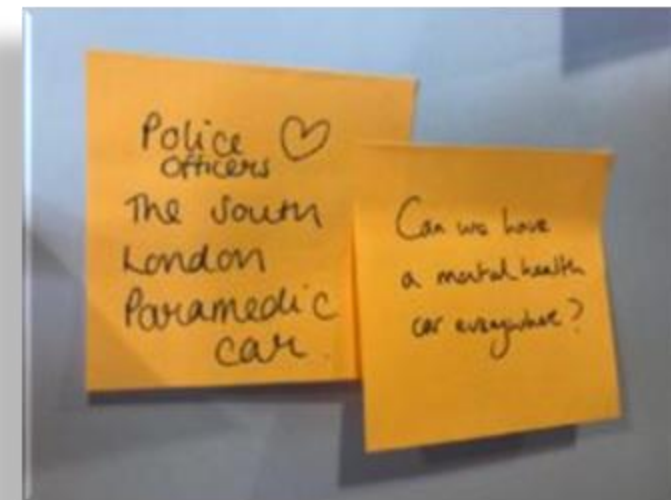 Police ♡
officers
The South
London
Paramedic
car.
Can we have
a mental health
car everywhere?